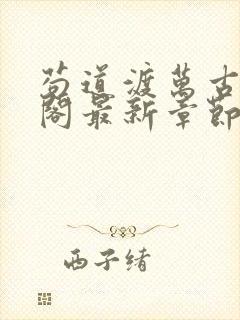 苟道渡萬古
閣最新章節
西子緒